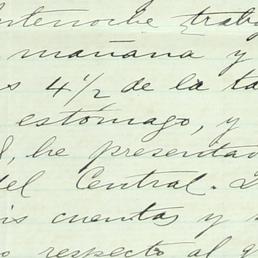 Anteroche trab
mañana y
s 4 1/2 de la ta
estómago, y
l, he presentad
del Central.
is cuentas y
o respecto al g